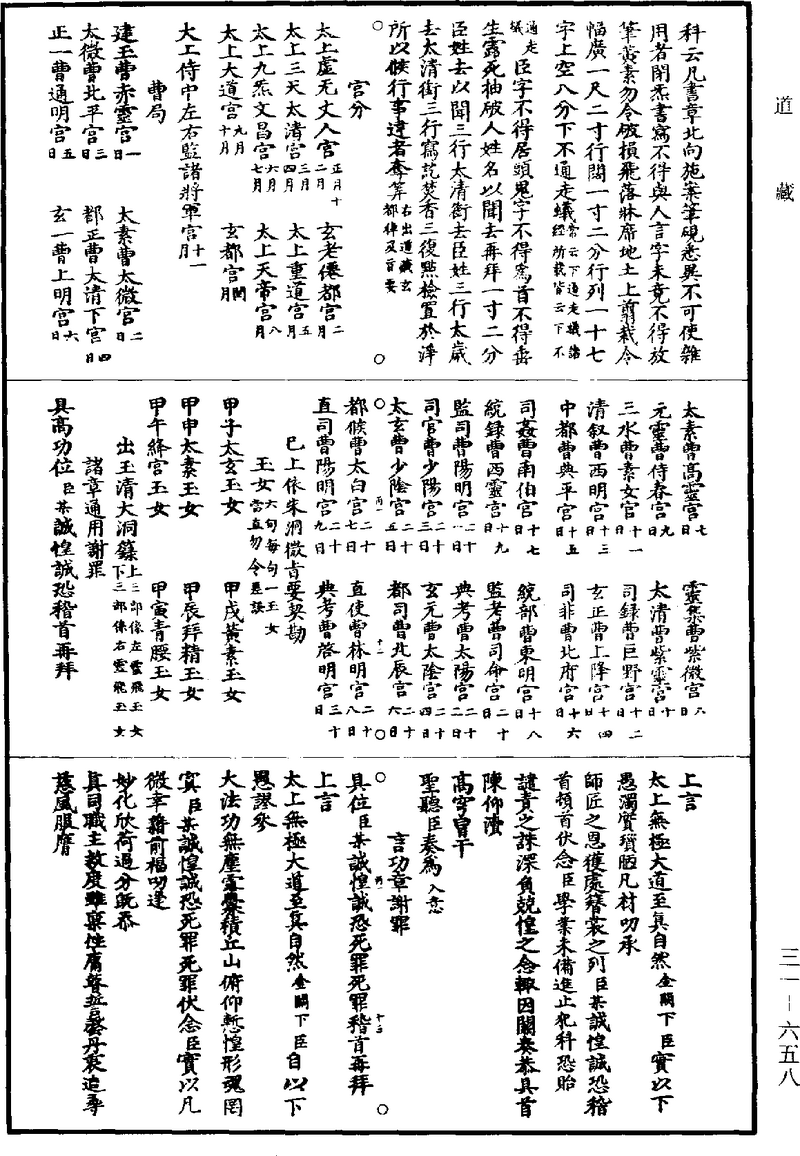 道藏
科云凡書章北向施案筆硯悉異不可使雜
用者閉炁書寫不得與人言字未竟不得放
筆黃素勿令破損飛落牀席地土上剪裁令
幅廣一尺二寸行闊一寸二分行列一十七
字上空八分下不通走蟻常云下通走蟻諸經所載皆云下不
通走蟻臣字不得居頭鬼字不得為首不得垂
生露死抽破人姓名以聞去再拜一寸二分
臣姓去以聞三行太清銜去臣姓三行太歲
去太清銜三行寫訖焚香三復點檢置於淨
所以俟行事違者奪筭右出道藏玄都律及旨要
宮分
太上虛无丈人宮正月十二月 玄老僊都宮二月
太上三天太清宮三月四月 太上重道宮五月
太上九炁文昌宮六月七月 太上天帝宮八月
太上大道宮九月十月 玄都宮閏月
大上侍中左右監諸將軍宮十一月
曹局
建王曹赤靈宮一日 太素曹太微宮二日
太微曹北平宮三日 都正曹太清下宮四日
正一曹通明宮五日 玄一曹上明宮六日
太素曹高靈宮七日 靈集曹紫微宮八日
元靈曹侍春宮九日 太清曹紫靈宮十日
三水曹素女宮十一日 司録曹巨野宮十二日
清叙曹西明宮十三日 玄正曹上降宮十四日
中都曹典平宮十五日 司非曹北府宮十六日
司姦曹南伯宮十七日 統部曹東明宮十八日
統錄曹西靈宮十九日 監考曹司命宮二十日
監司曹陽明宮二十一日 典考曹太陽宮二十二日
司官曹少陽宮二十三日 玄元曹太陰宮二十四日
太玄曹少陰宮二十五日 都司曹北辰宮二十六日
都候曹太白宮二十七日 直使曹林明宮二十八日
直司曹陽明宮二十九日 典考曹啓明宮三十日
已上依朱洞微旨要契勘
玉女六旬每旬一玉女當直勿令差誤
甲子太玄玉女 甲戌黃素玉女
甲申太素玉女 甲辰拜精玉女
甲午絳宮玉女 甲寅青腰玉女
出玉清大洞籙上三部係左靈飛玉女下三部係右靈飛玉女
諸章通用謝罪
具高功位臣某誠惶誠恐稽首再拜
上言
太上無極大道至真自然金闕下臣實以下
愚濁質瓆陋凡材叨承
師匠之恩獲處簪裳之列臣某誠惶誠恐稽
首頓首伏念臣學業未備進止犯科恐貽
譴責之誅深負兢惶之念輒因關奏恭具首
陳仰瀆
高穹曾干
聖聽臣奏為入意
言功章謝罪
具位臣某誠惶誠恐死罪死罪稽首再拜
上言
太上無極大道至真自然金闕下臣自以下
愚謬參
大法功無塵露釁積丘山俯仰慙惶形魂罔
寘臣某誠惶誠恐死罪死罪伏念臣實以凡
微幸藉前福叨逢
妙化欣荷過分既忝
真司職主救度雖稟性庸瞢誓啓丹衷追尋
慈風服膺
三一－六五八